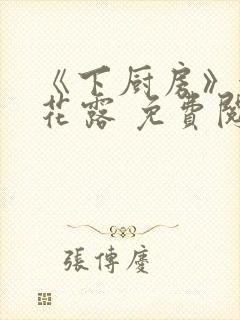 《下厨房》
花露 免費閱
張傳慶